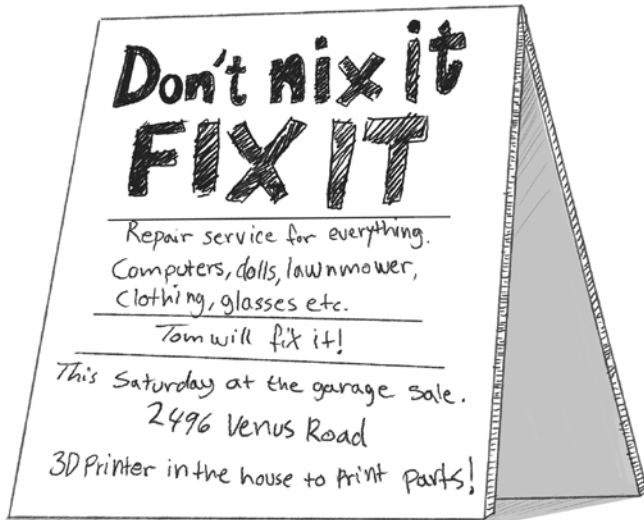 Don't nix it
FIX IT
Repair service for everything.
Computers, dolls, lawnmower,
Clothing, glasses etc.
Tom will fix it!
This Saturday at the garage sale.
2496 Venus Road
3D Printer in the house to Print parts!